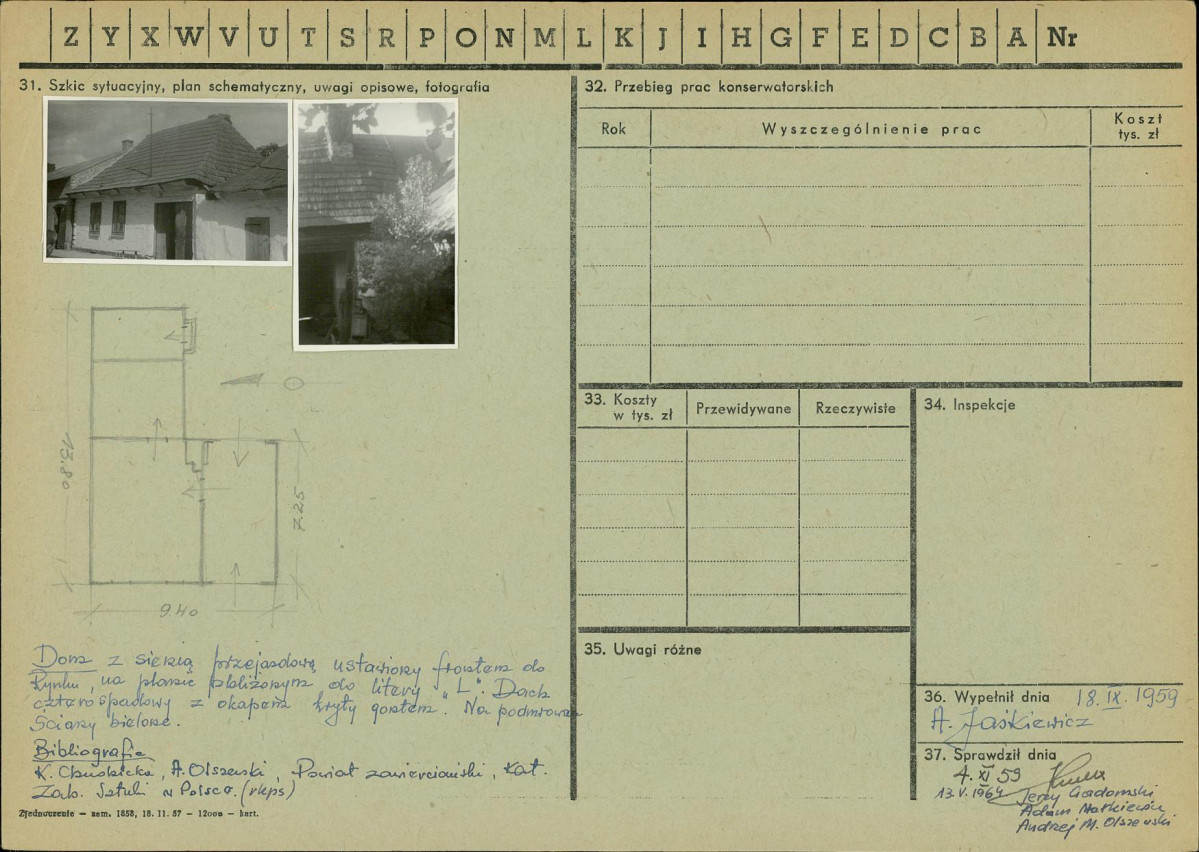 Z Y X W V U T S R P O N M L K J I H G F E D C B A Nr
31. Szkic sytuacyjny, plan schematyczny, uwagi opisowe, fotografia
13.80
7.25
9.40
Dom z sienią przejazdową ustawiony frontem do
Rynku, na planie zbliżonym do litery "L". Dach
czterospadowy z okapem kryty gontem. Na podmurowan
Ściany bielone.
Bibliografia
K. , A. Olszewski, Powiat zawierciański, Kat.
Zab. Sztuki w Polsce. (rkps)
Zjednoczenie — zam. 1858, 18. 11. 57 — 12000 — kart.
32. Przebieg prac konserwatorskich
Rok Wyszczególnienie prac Koszt tys. zł
33. Koszty w tys. zł Przewidywane Rzeczywiste
34. Inspekcje
35. Uwagi różne
36. Wypełnił dnia 18. IX. 1959
A. Jaśkiewicz
37. Sprawdził dnia
4. XI 59
13. V. 1964 Jerzy Gadomski
Adam Małkiewicz
Andrzej M. Olszewski